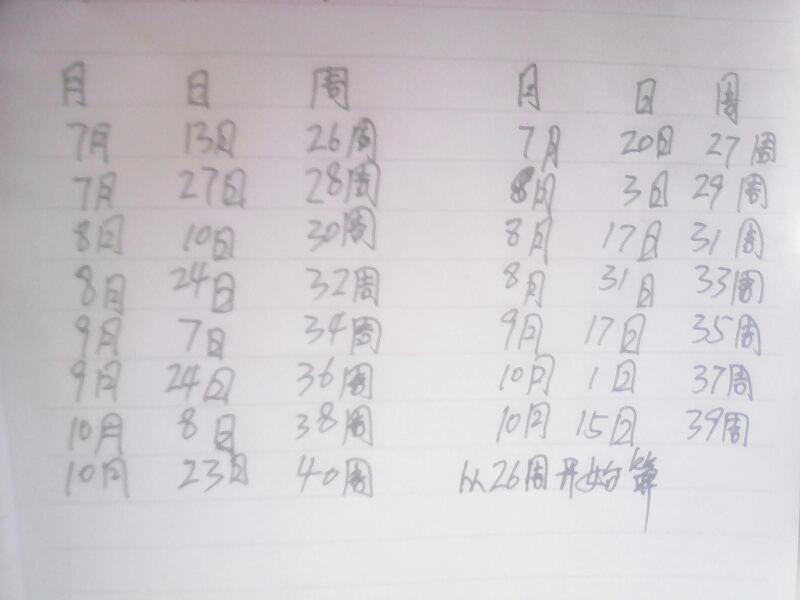 月 日 周 月 日 周
7月 13日 26周 7月 20日 27周
7月 27日 28周 8月 3日 29周
8月 10日 30周 8月 17日 31周
8月 24日 32周 8月 31日 33周
9月 7日 34周 9月 17日 35周
9月 24日 36周 10月 1日 37周
10月 8日 38周 10月 15日 39周
10月 23日 40周 从26周开始算